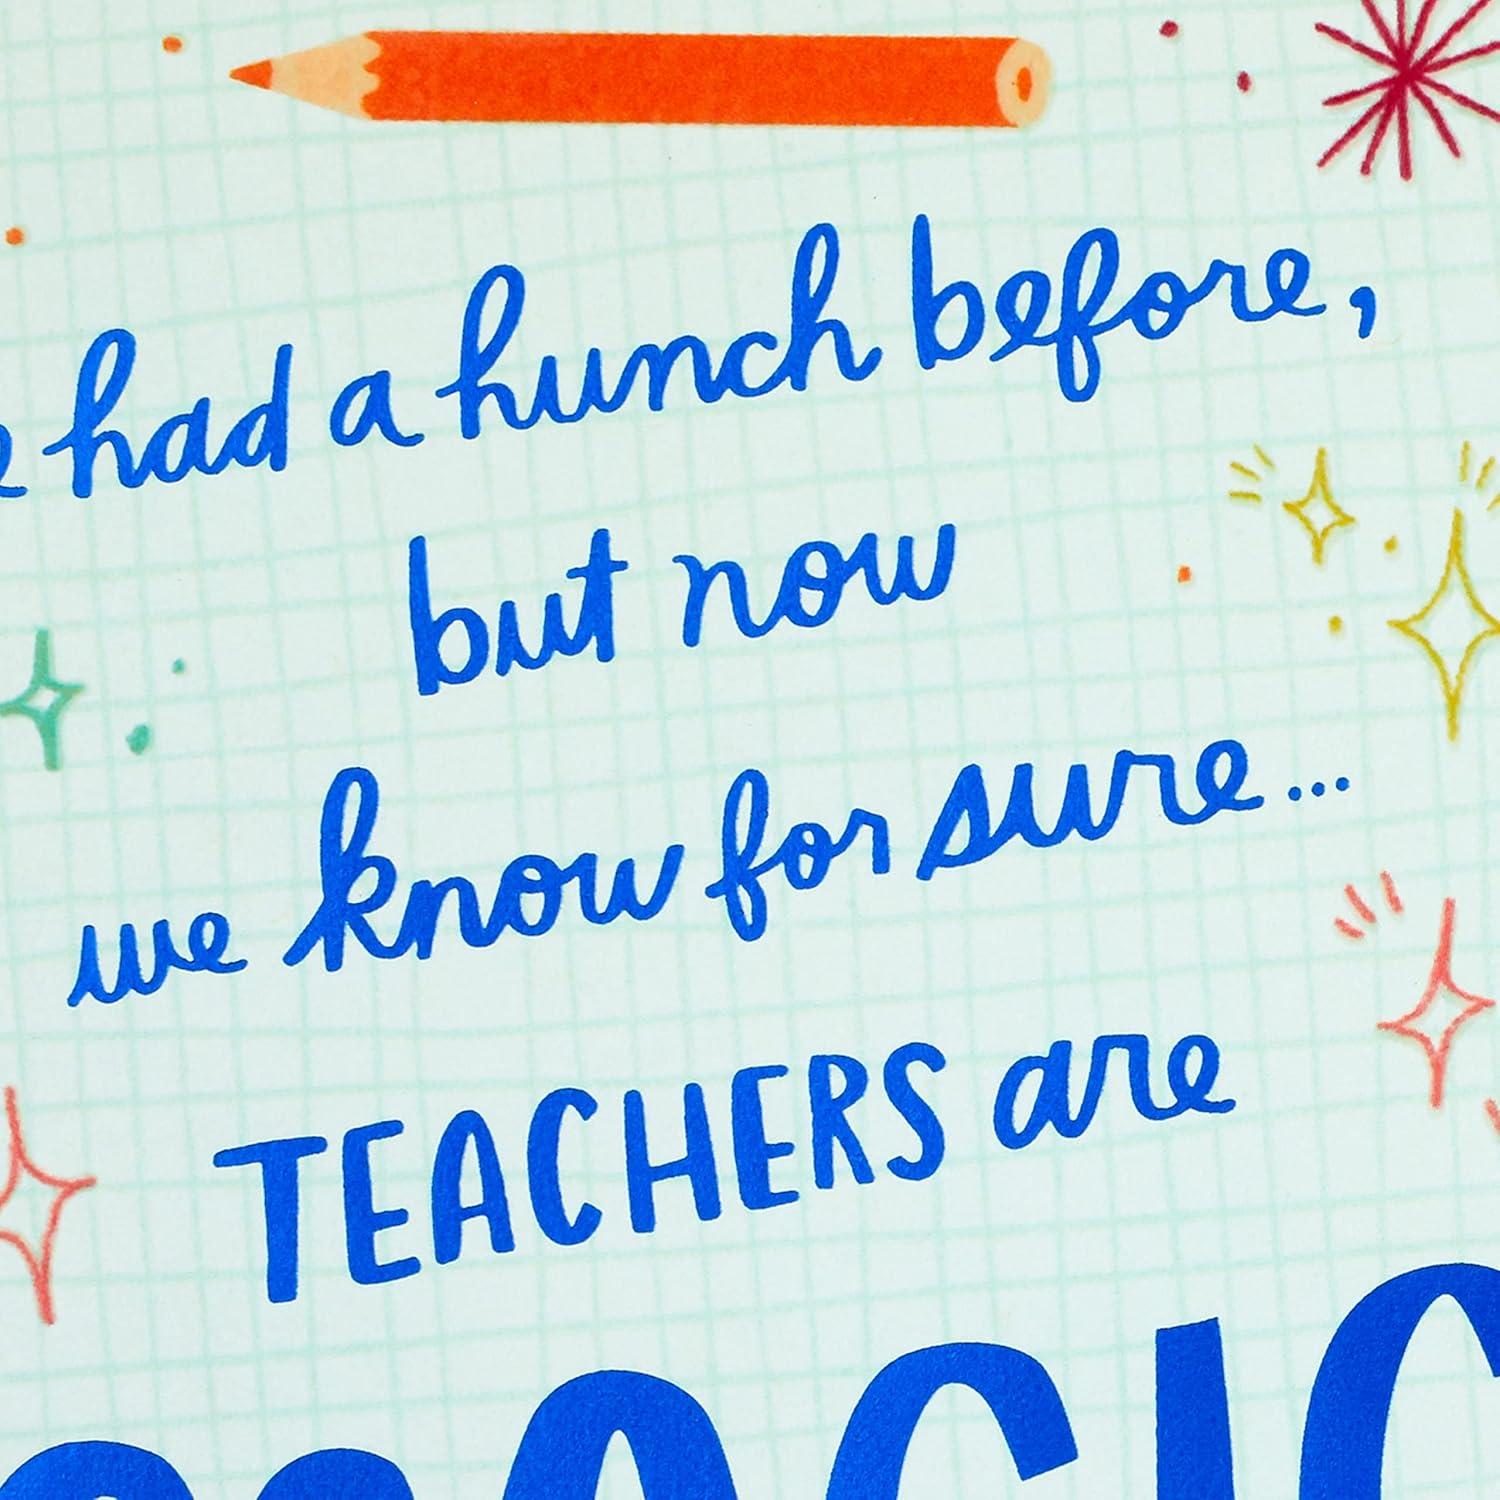 had a hunch before,
but now
we know for sure...
TEACHERS are
MAGIC